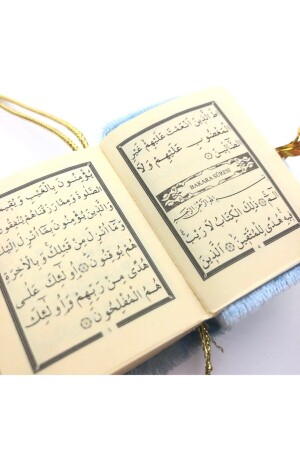 طَ الَّذِينَ أَنْعَمْتَ عَلَيْهِمْ غَيْرِ
الْمَغْضُوبِ عَلَيْهِمْ وَلَا
الضَّالِّينَ
BAKARA SÛRESİ
بِسْمِ اللهِ الرَّحْمٰنِ الرَّحِيمِ
الٓمٓ ذٰلِكَ الْكِتَابُ لَا رَيْبَ
فِيهِ هُدًى لِلْمُتَّقِينَ الَّذِينَ
يُؤْمِنُونَ بِالْغَيْبِ وَيُقِيمُونَ
الصَّلٰوةَ وَمِمَّا رَزَقْنَاهُمْ يُنْفِقُونَ
وَالَّذِينَ يُؤْمِنُونَ بِمَا أُنْزِلَ إِلَيْكَ
وَمَا أُنْزِلَ مِنْ قَبْلِكَ وَبِالْآخِرَةِ
هُمْ يُوقِنُونَ أُولٰئِكَ عَلٰى
هُدًى مِنْ رَبِّهِمْ وَأُولٰئِكَ
هُمُ الْمُفْلِحُونَ